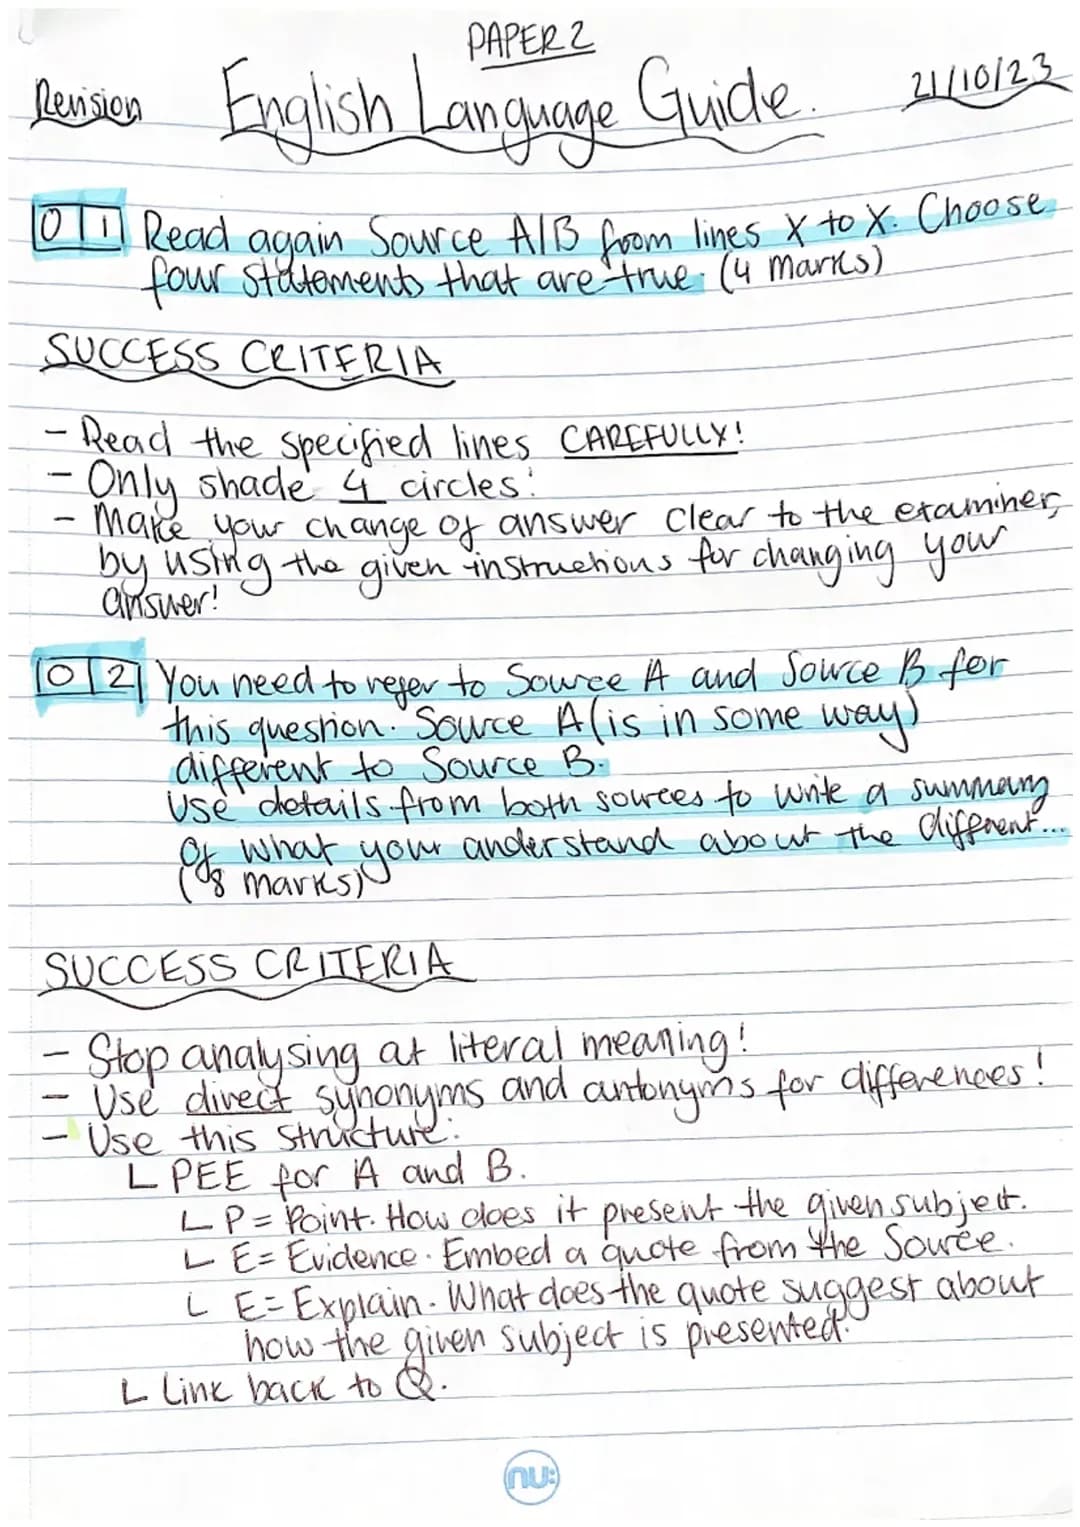 PAPER 2
Revision English Language Guide. 21/10/23
01 Read again Source A/B from lines X to X. Choose
four statements that are true. (4 marks)
SUCCESS CRITERIA
- Read the specified lines CAREFULLY!
- Only shade 4 circles!
- Make your change of answer clear to the examiner,
by using the given instructions for changing your
answer!
02 You need to refer to Source A and Source B for
this question. Source A (is in some way)
different to Source B.
Use details from both sources to write a summary
of what your understand about the different...
(8 marks)
SUCCESS CRITERIA
- Stop analysing at literal meaning!
- Use direct synonyms and antonyms for differences!
- Use this structure:
L PEE for A and B.
L P = Point. How does it present the given subject.
L E = Evidence. Embed a quote from the Source.
L E = Explain. What does the quote suggest about
how the given subject is presented.
L Link back to Q.
nu: